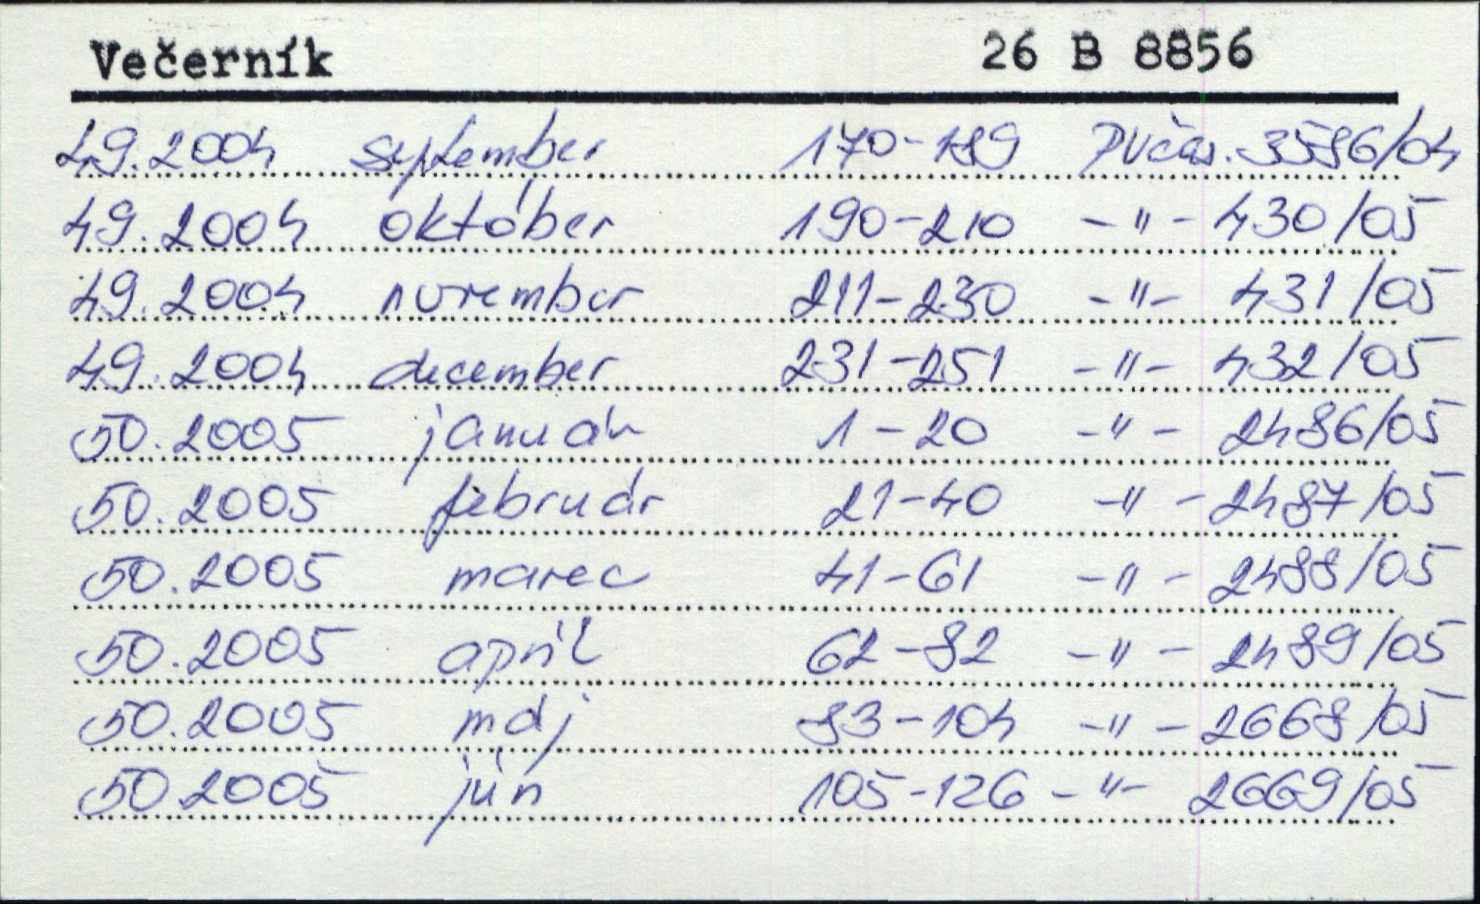 Večerník 26 B 8856
49.2004 september 170-189 PVčas. 3586/04
49.2004 október 190-210 -"- 430/05
49.2004 november 211-230 -"- 431/05
49.2004 december 231-251 -"- 432/05
50.2005 január 1-20 -"- 2486/05
50.2005 február 21-40 -"- 2487/05
50.2005 marec 41-61 -"- 2488/05
50.2005 apríl 62-82 -"- 2489/05
50.2005 máj 83-104 -"- 2668/05
50.2005 jún 105-126 -"- 2669/05